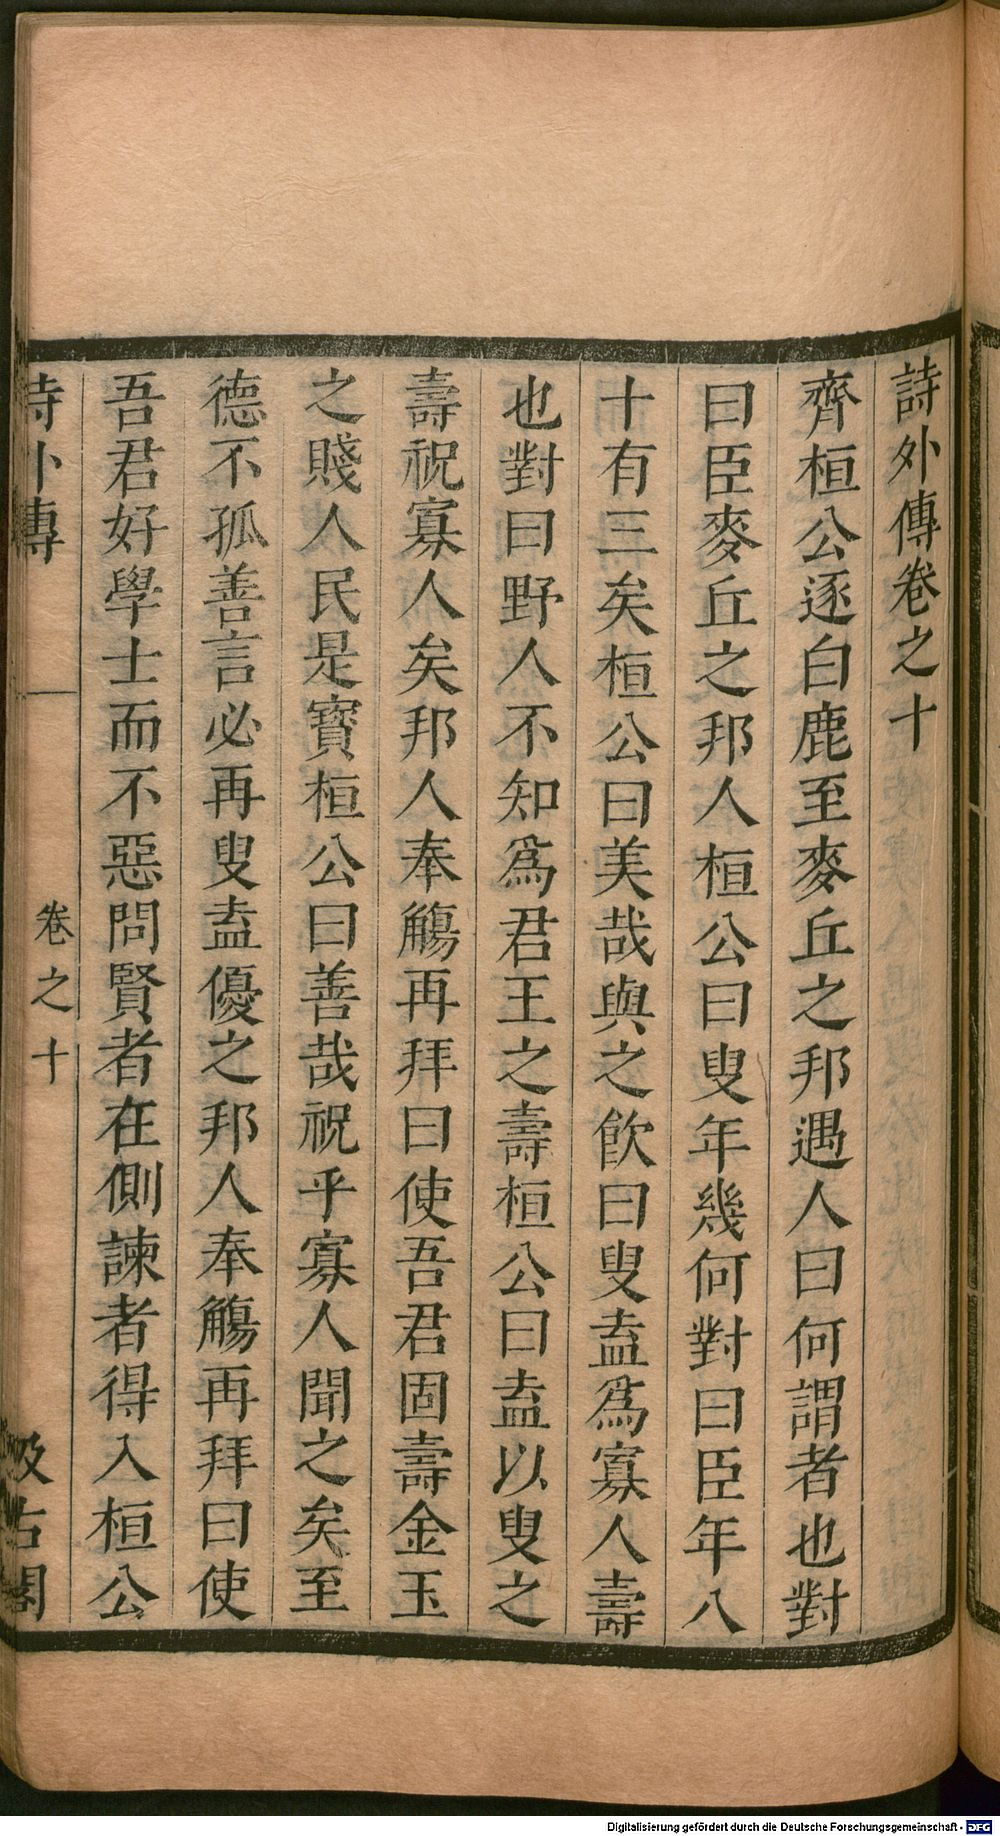 詩外傳卷之十
齊桓公逐白鹿至麥丘之邦遇人曰何謂者也對
曰臣麥丘之邦人桓公曰叟年幾何對曰臣年八
十有三矣桓公曰美哉與之飮曰叟盍爲寡人壽
也對曰野人不知爲君王之壽桓公曰盍以叟之
壽祝寡人矣邦人奉觴再拜曰使吾君固壽金玉
之賤人民是寶桓公曰善哉祝乎寡人聞之矣至
德不孤善言必再叟盍優之邦人奉觴再拜曰使
吾君好學士而不惡問賢者在側諫者得入桓公
詩外傳 卷之十 汲古閣
Digitalisierung gefördert durch die Deutsche Forschungsgemeinschaft - DFG